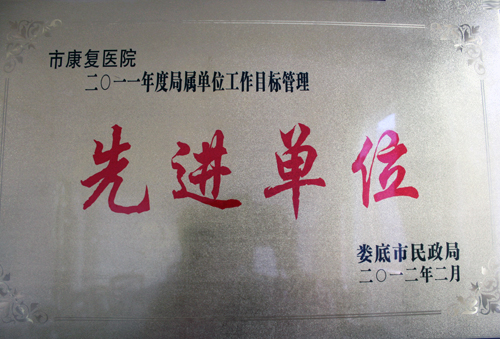 市康复医院
二〇一一年度局属单位工作目标管理
先进单位
娄底市民政局
二〇一二年二月